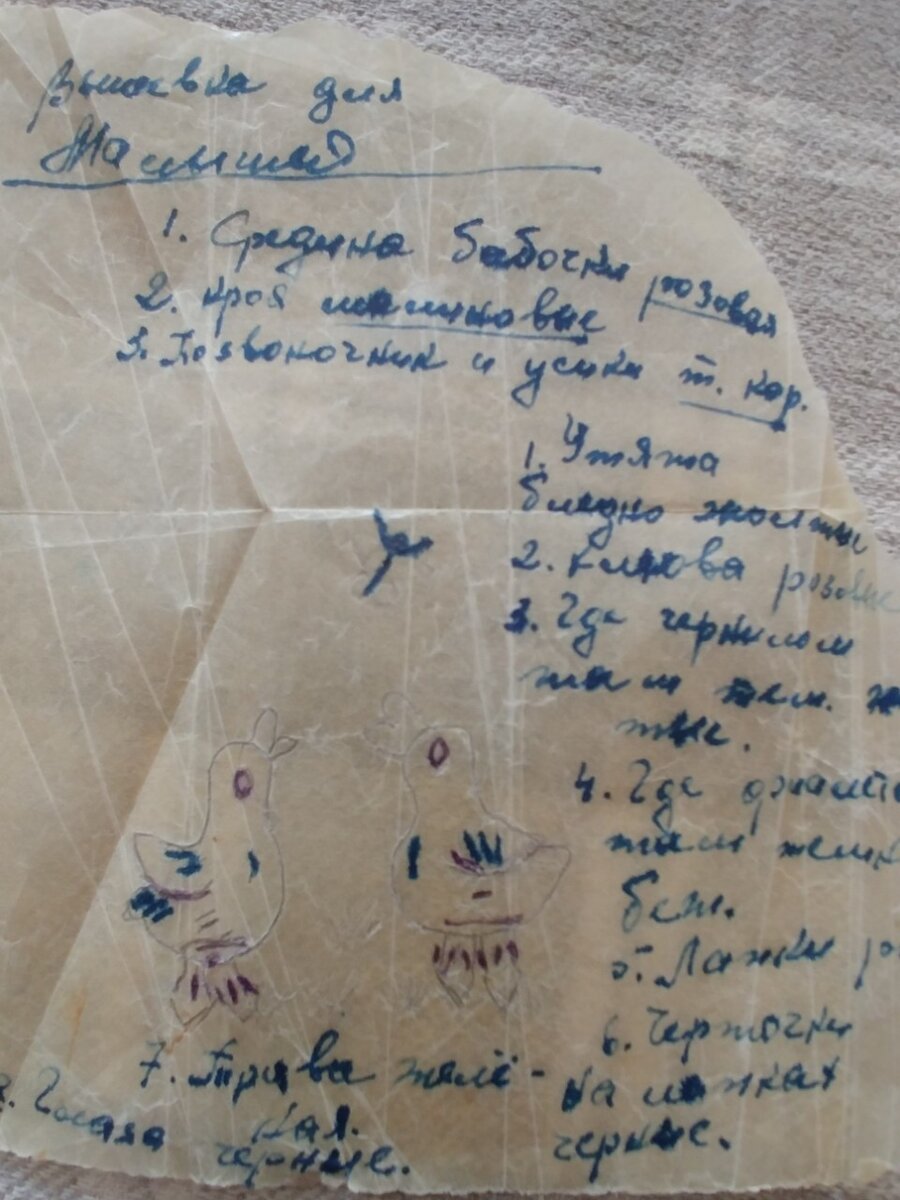 Вышивка для
Малышей
1. Средина бабочки розовая
2. Края малиновые
3. Позвоночник и усики т. кор.
1. Утята
бледно жолтые
2. Клюва розовые
3. Где чернилом
там тем. ж
тые.
4. Где
там
беж.
5. Лапки ро
6. Черточки
на лапках
черные.
7. Трава зелё-
ная.
8. Глаза
черные.